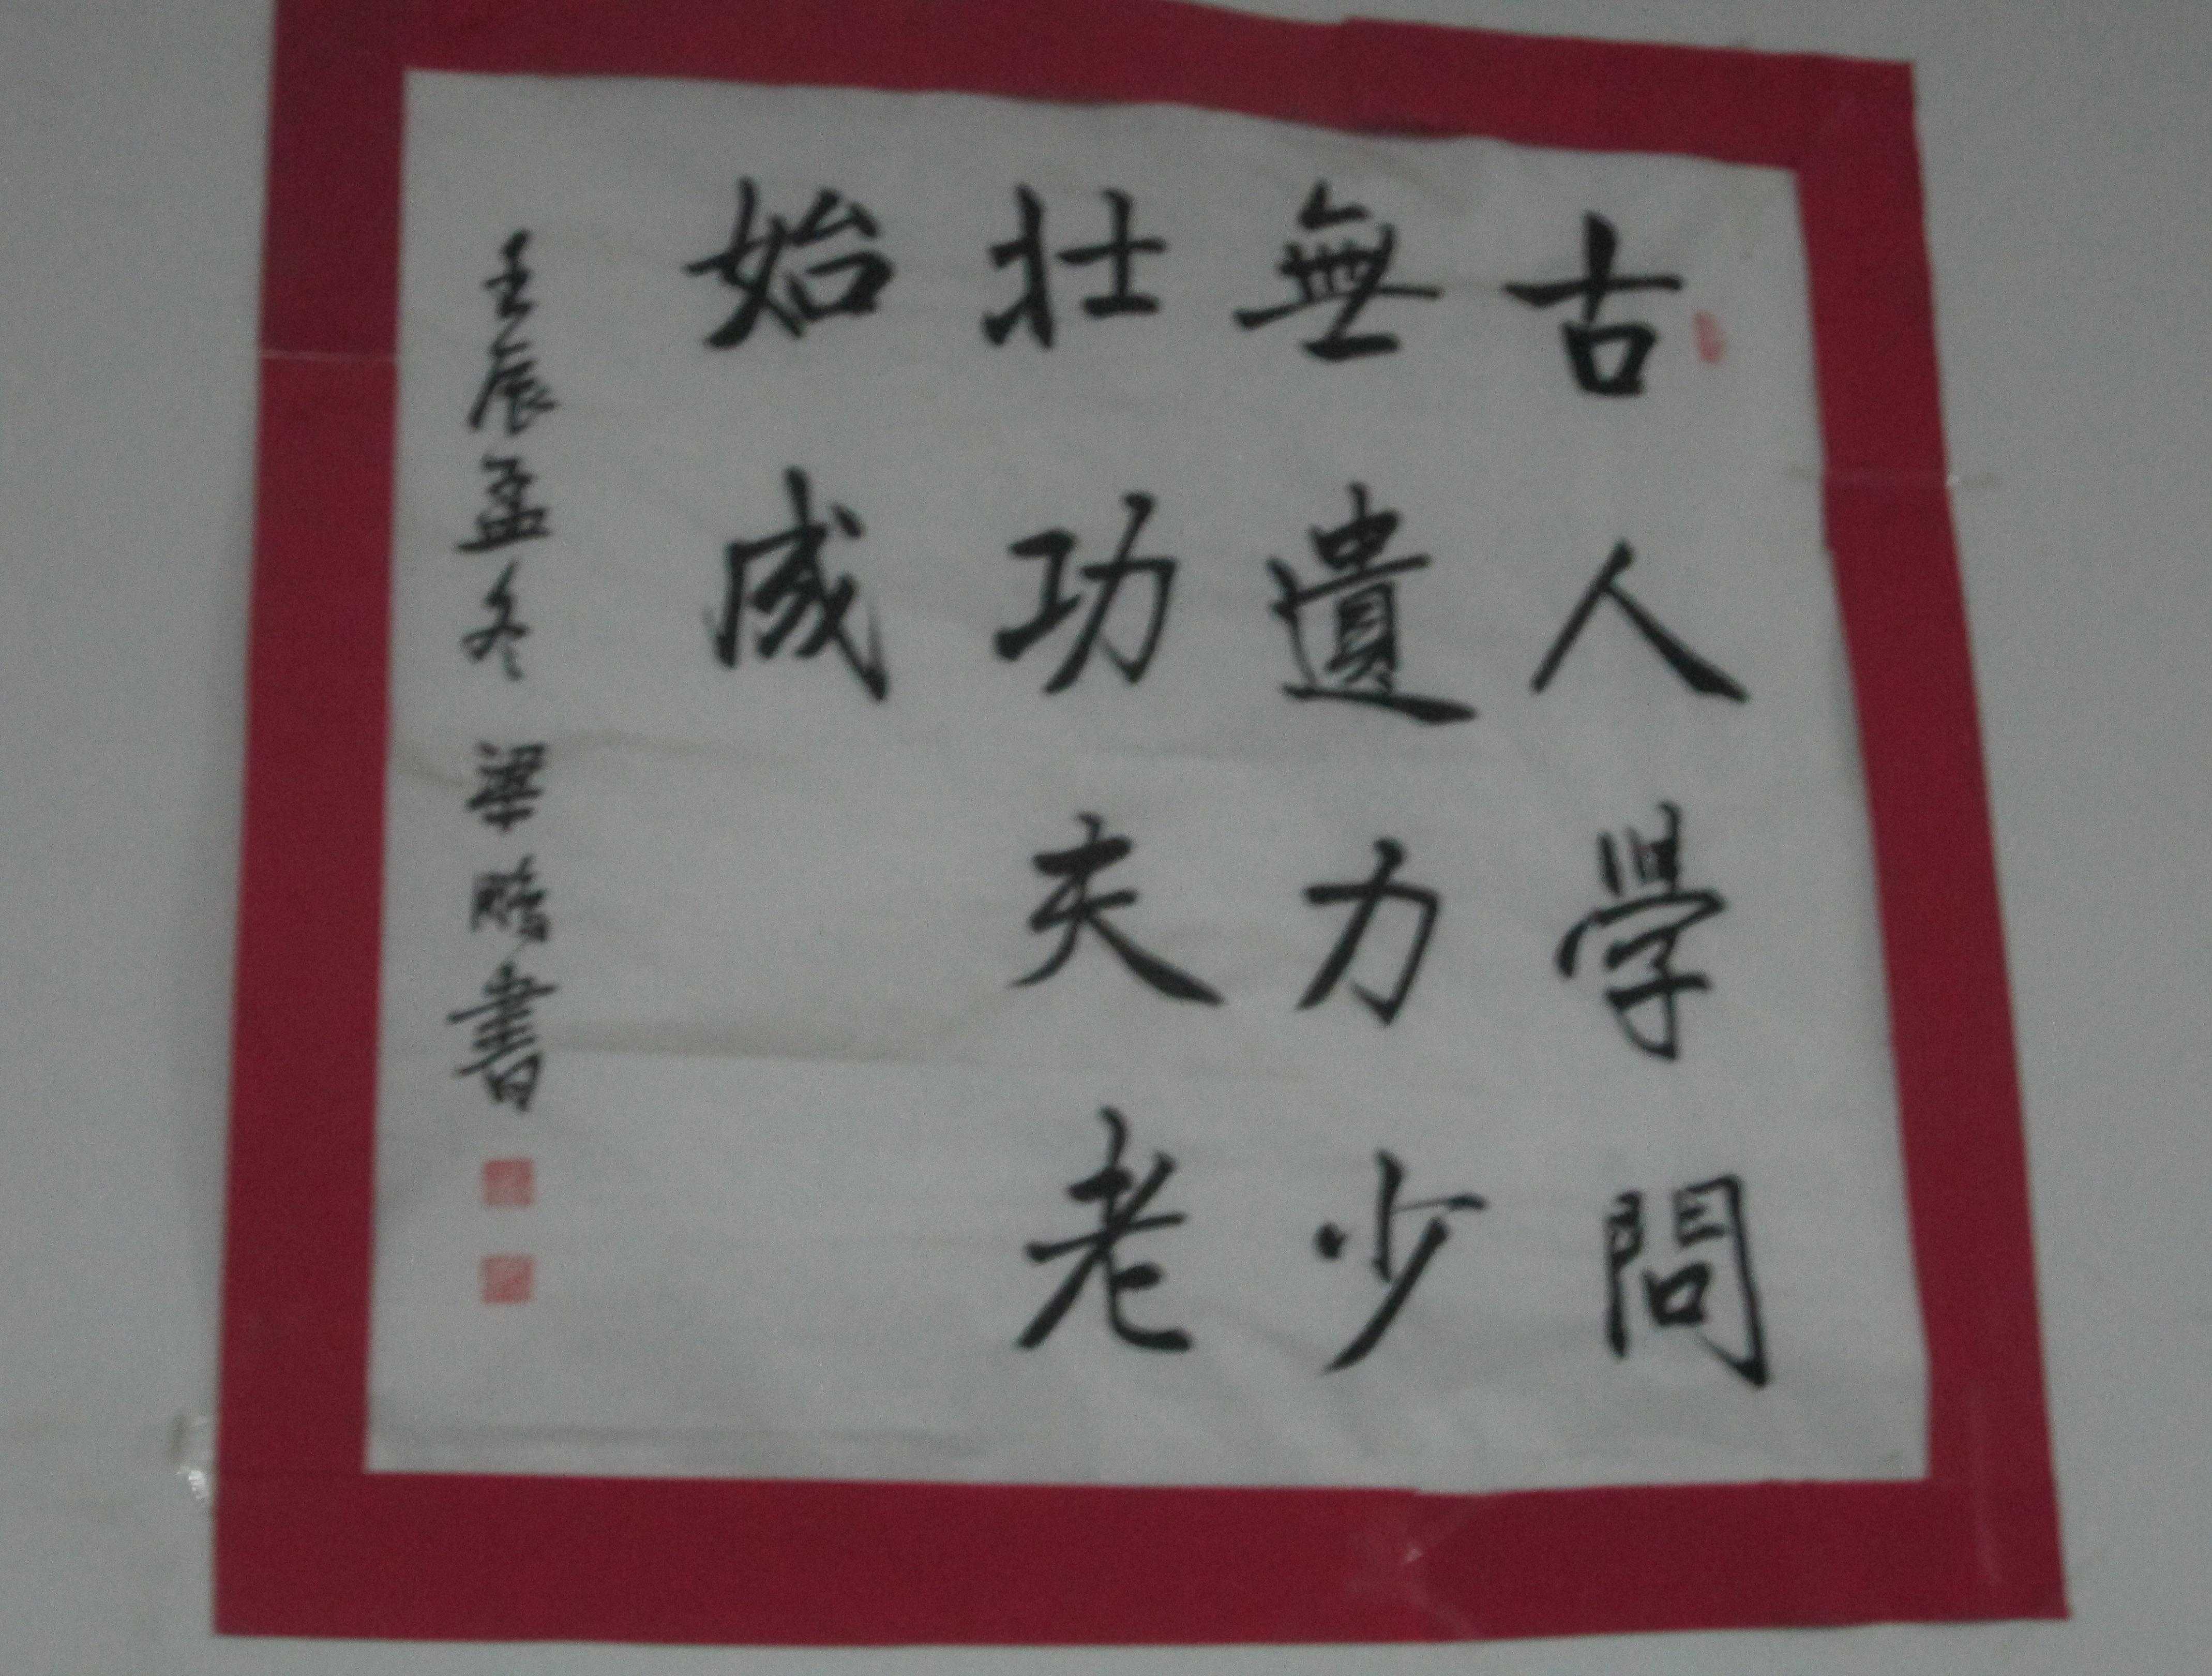 古人學問
無遺力少
壯功夫老
始成
壬辰孟冬 梁 書